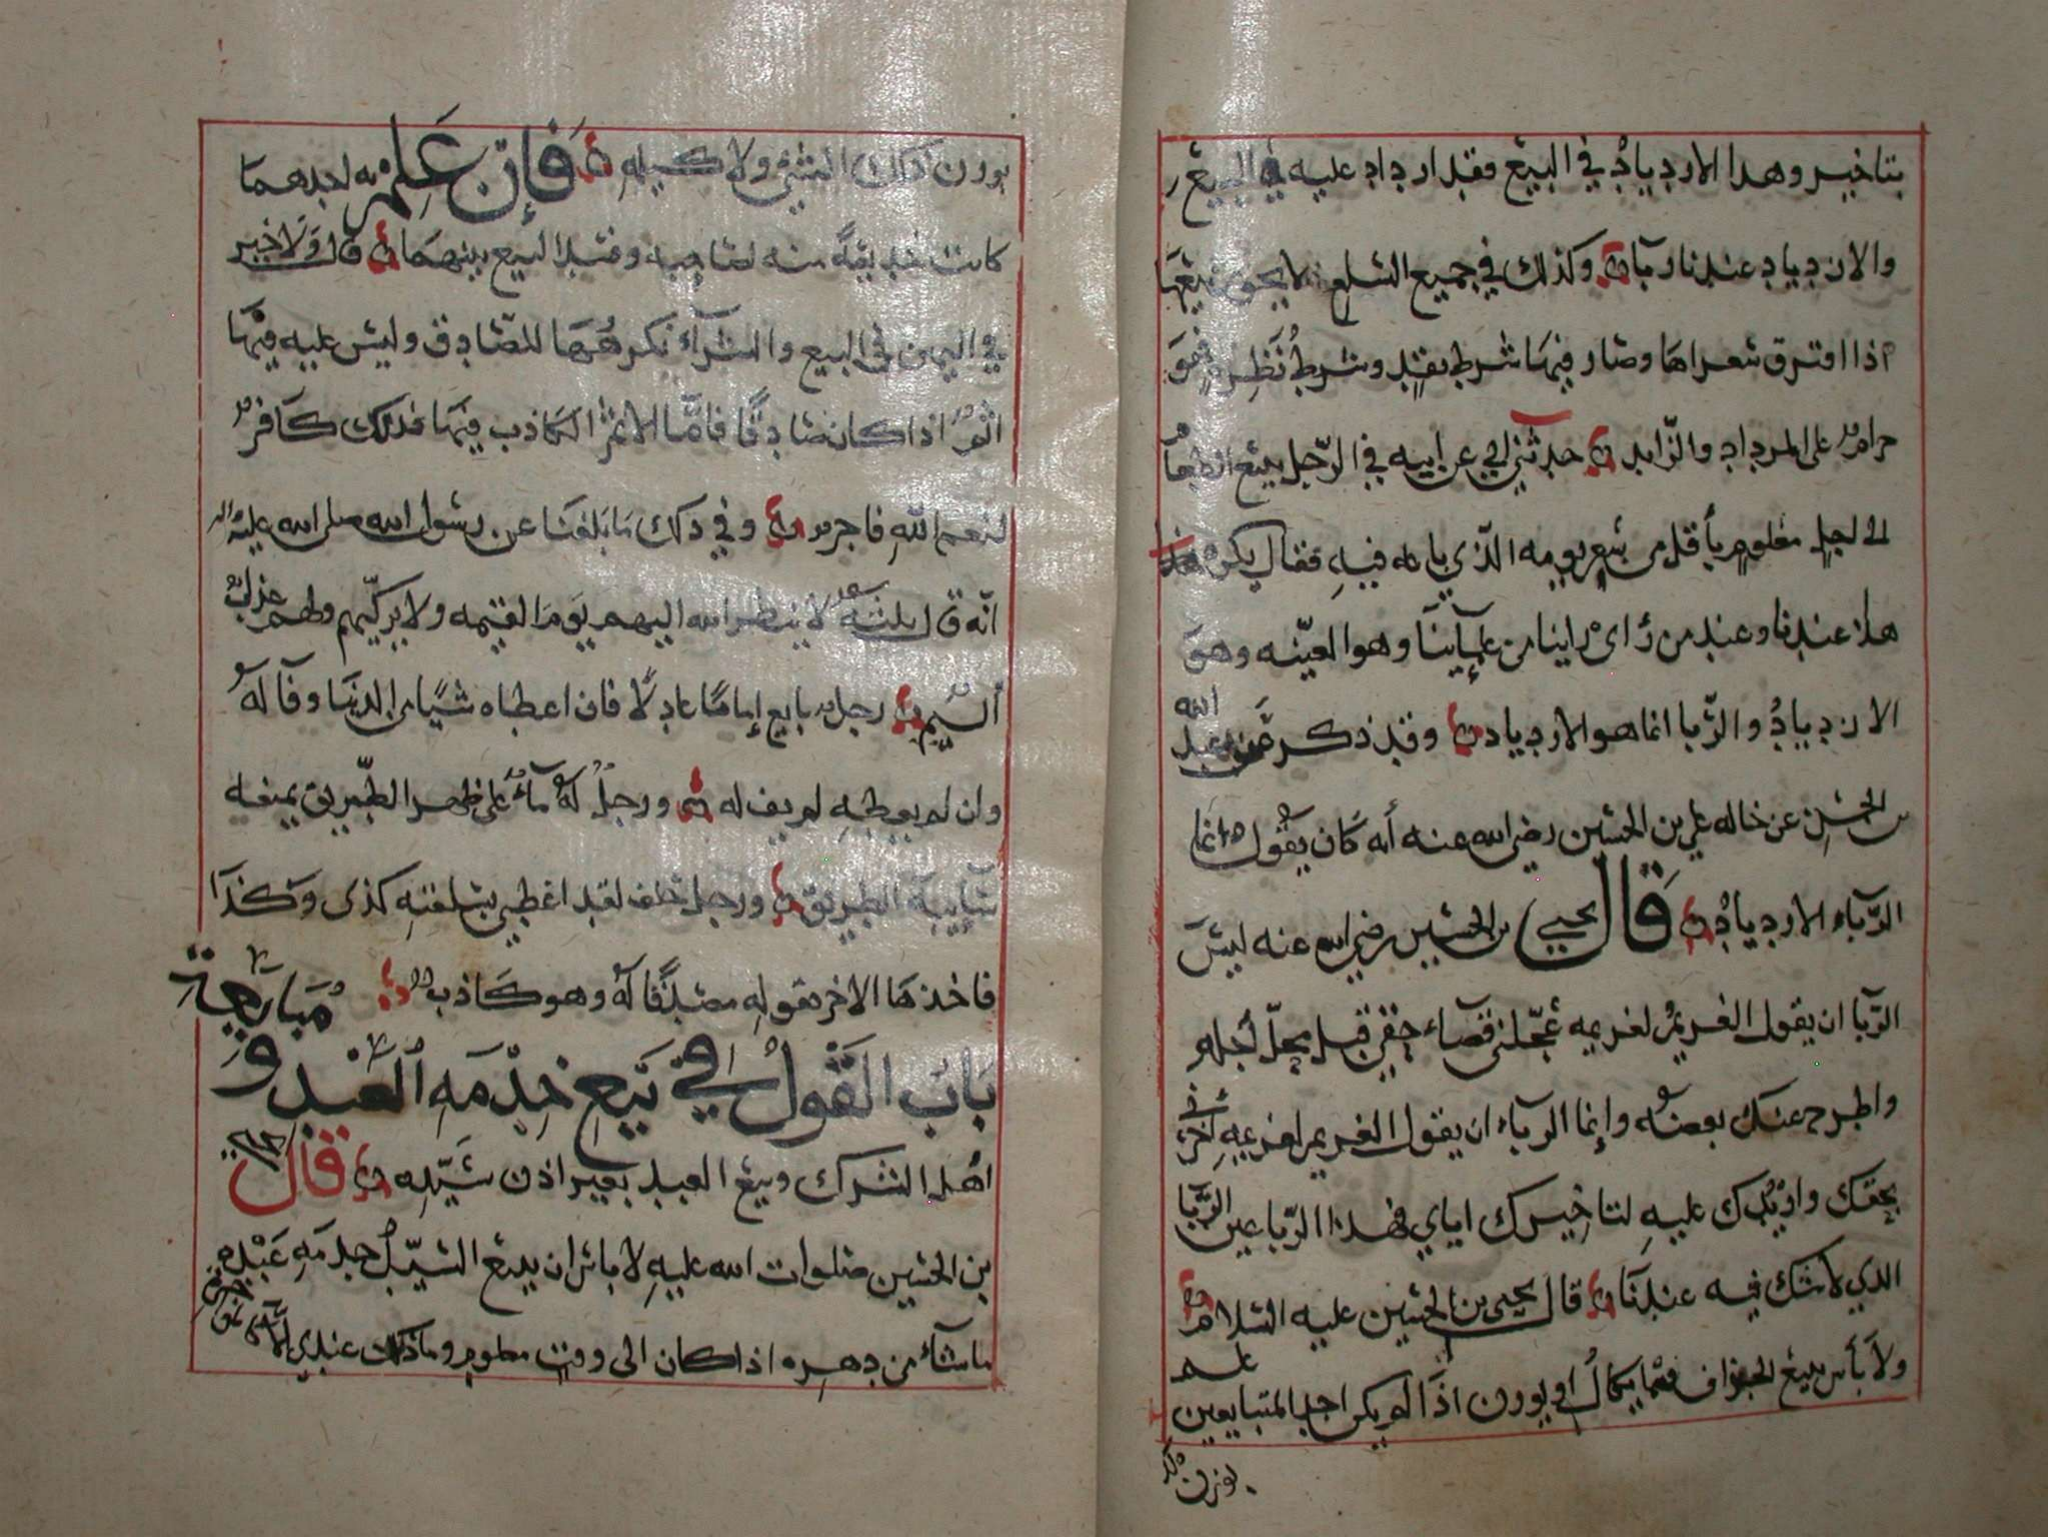 بتاخير وهذا الازدياد في البيع فقد ازداد عليه في البيع
والازدياد عندنا ربا وكذلك في جميع السلع لا يجوز بيعها
اذا افترق سعراها وصار فيها شرط نقد وشرط نظرة فهو
حرام على المزداد والزايد حدثني ابي عن ابيه في الرجل يبيع الطعام
الى اجل معلوم بأقل من سعر يومه الذي باعه فيه فقال يكره هذا
هذا عندنا وعند من رأى راينا من علمآينا وهو العينه وهو
الازدياد والربا انما هو الازدياد وقد ذكر عن عبد الله
بن الحسن عن خاله علي بن الحسين رضي الله عنه أنه كان يقول انما
الربآء الازدياد قال يحيى بن الحسين رضي الله عنه ليس
الربا ان يقول الغريم لغريمه عجلني قضآء حقي قبل محل أجله
واطرح عنك بعضه وإنما الربآء ان يقول الغريم لغريمه أخرني في
بحقك وازيدك عليه لتاخيرك اياي فهذا الربا عين الربا
الذي لا شك فيه عندنا قال يحيى بن الحسين عليه السلام
ولا بأس ببيع الجزاف فيما يكال او يوزن اذا لم يكن احد المتبايعين علم
بوزن ذلك
بوزن ذلك الشي ولا كيله فإن علمه احدهما
كانت خديعةً منه لصاحبه وفسد البيع بينهما قال ولا خير
في اليمين في البيع والشرآء نكرهها للصادق وليس عليه فيها
اثم اذا كان صادقًا فامّا الاثم الكاذب فيها فذلك كافر
لنعم الله فاجر وفي ذلك ما بلغنا عن رسول الله صلى الله عليه واله
انّه قال ثلثه لا ينظر الله اليهم يوم القيمه ولا يزكّيهم ولهم عذاب
أليم رجل بايع إمامًا عادلًا فان اعطاه شيًا من الدنيا وفآ له
وان لم يعطه لم يف له ورجل له مآء على ظهر الطريق يمنعه
سابلة الطريق ورجل حلف لقد اعطي بسلعته كذى وكذا
فاخذها الاخر بقوله مصدقًا له وهو كاذب
باب القول في بيع خدمه العبد و مبايعة
اهل الشرك وبيع العبد بغير اذن سيّده قال يحيى
بن الحسين صلوات الله عليه لا باس ان يبيع السيّد خدمه عبده
ما شآء من دهره اذا كان الى وقت معلوم وما ذلك عندي الا